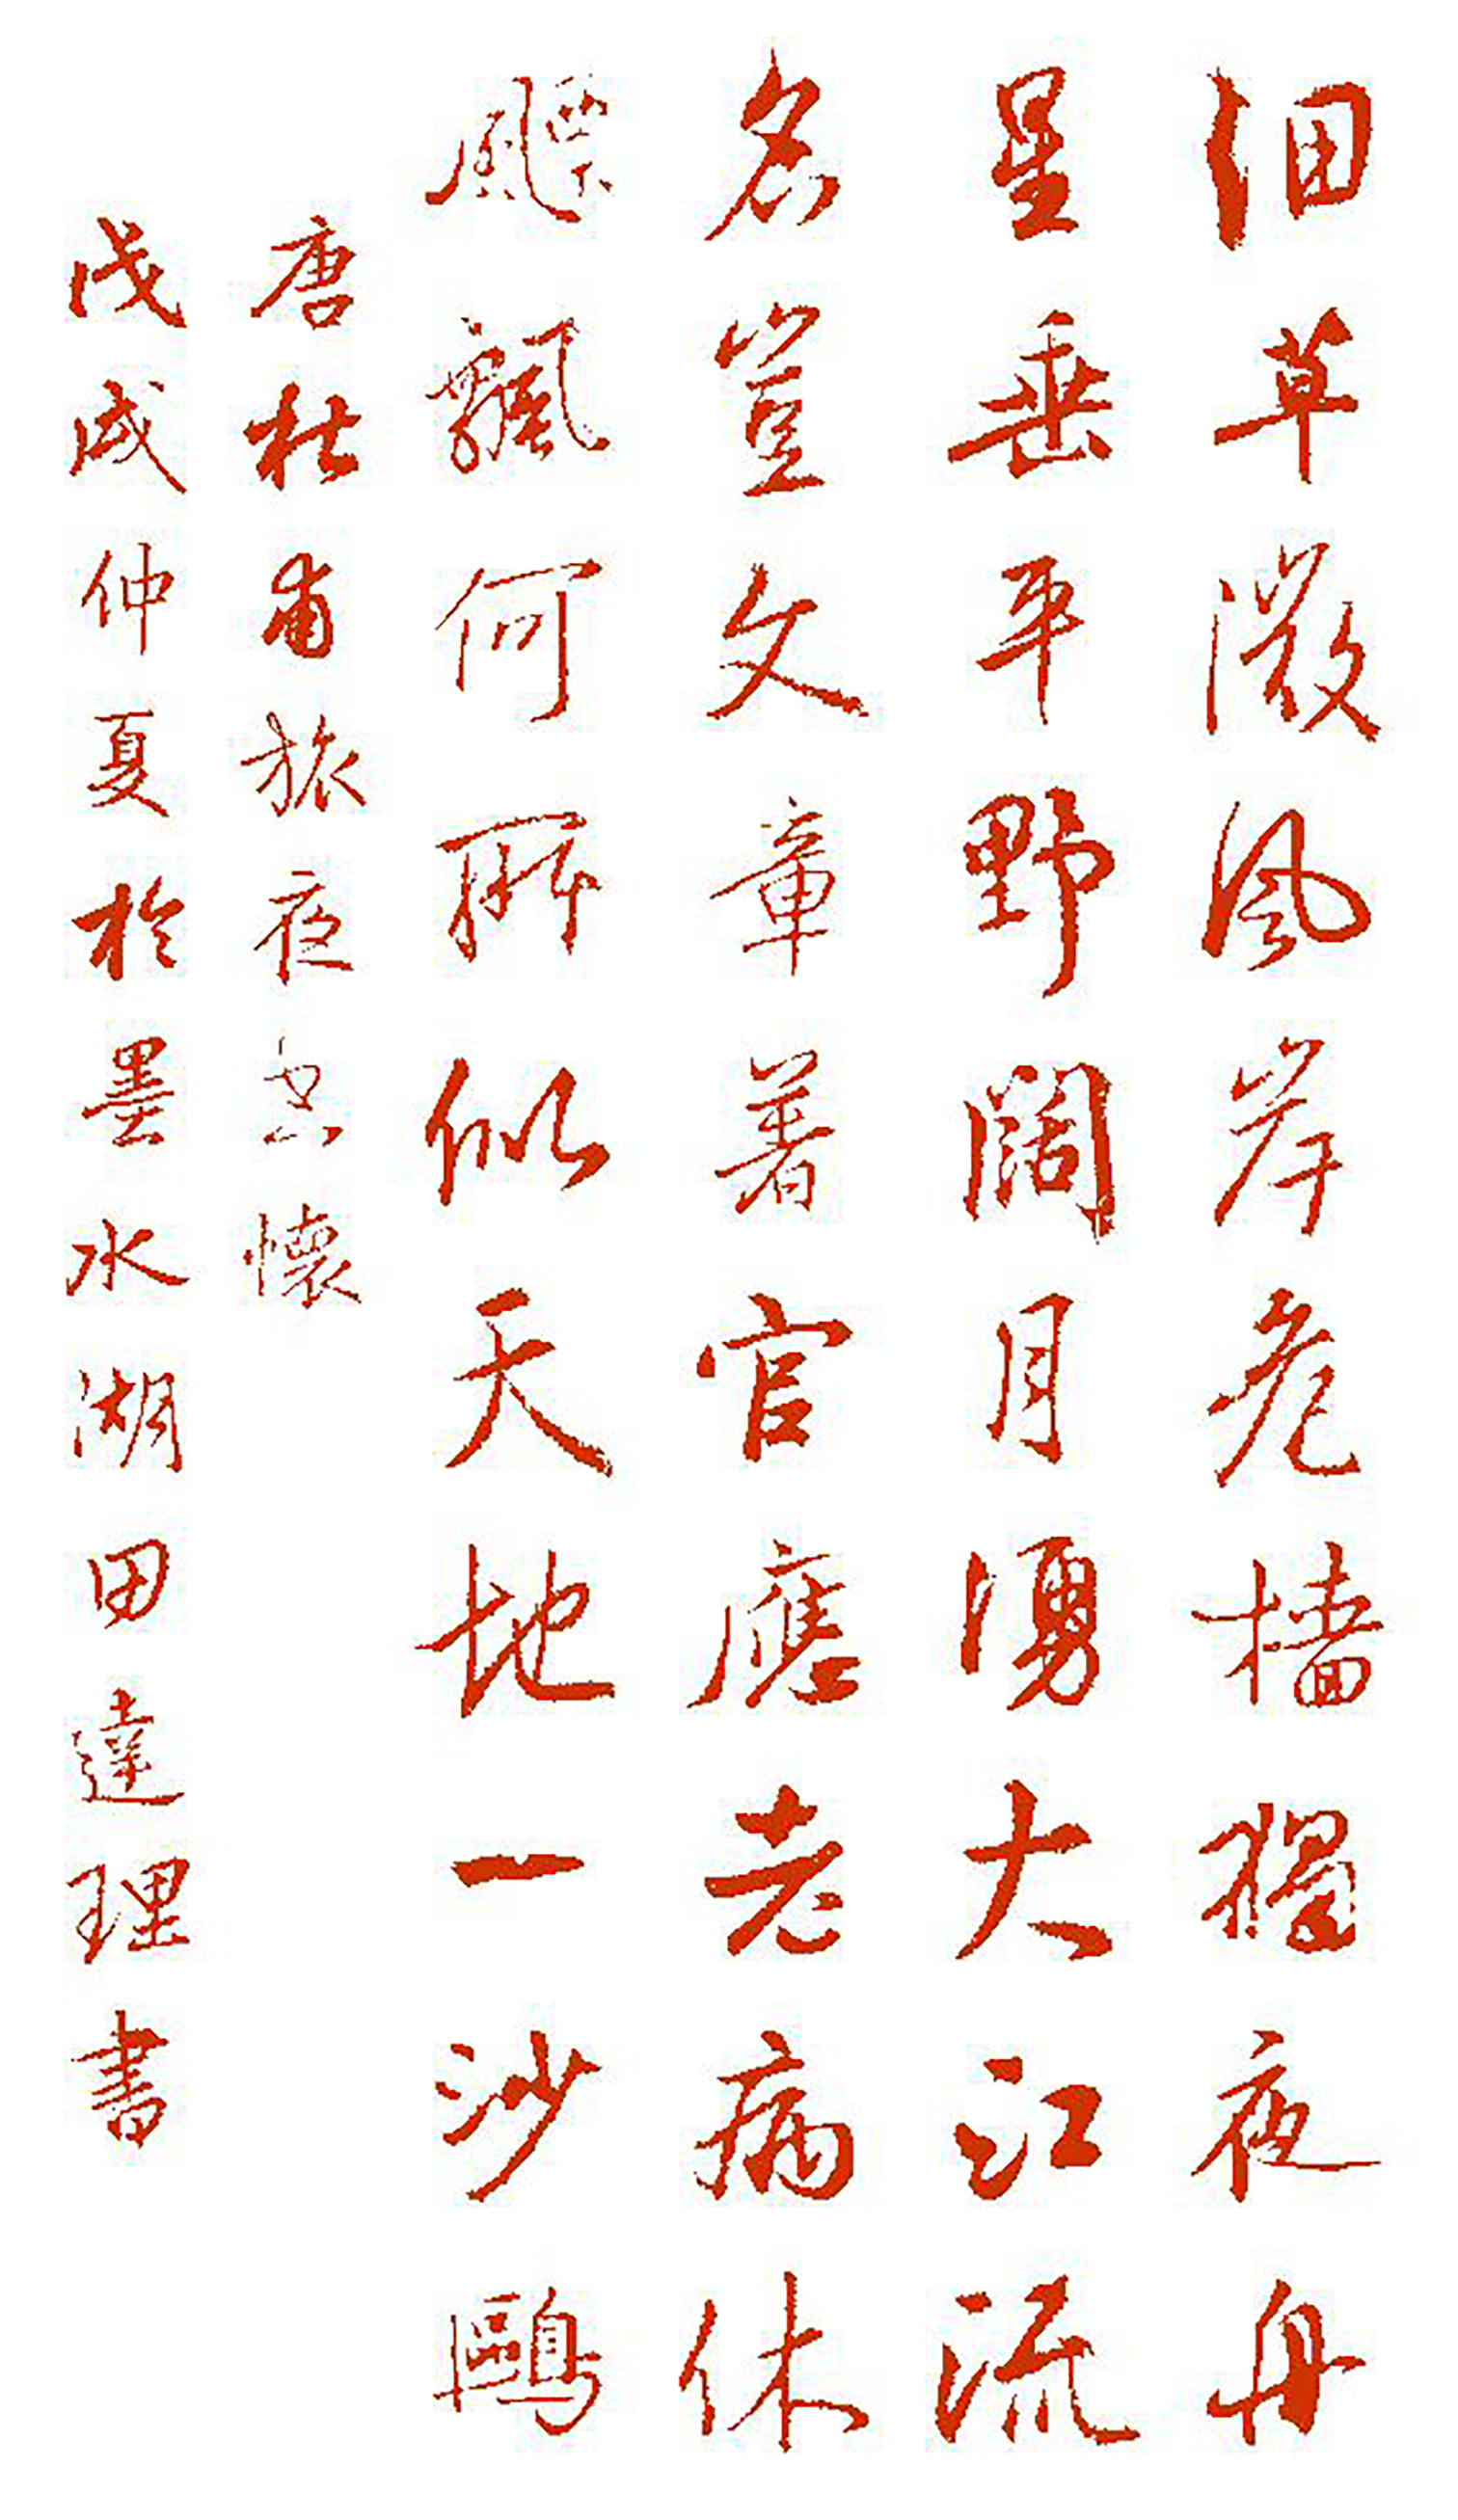 細草微風岸危檣獨夜舟
星垂平野闊月湧大江流
名豈文章著官應老病休
飃飄何所似天地一沙鷗
唐杜甫旅夜書懷
戊戌仲夏於墨水湖田達理書